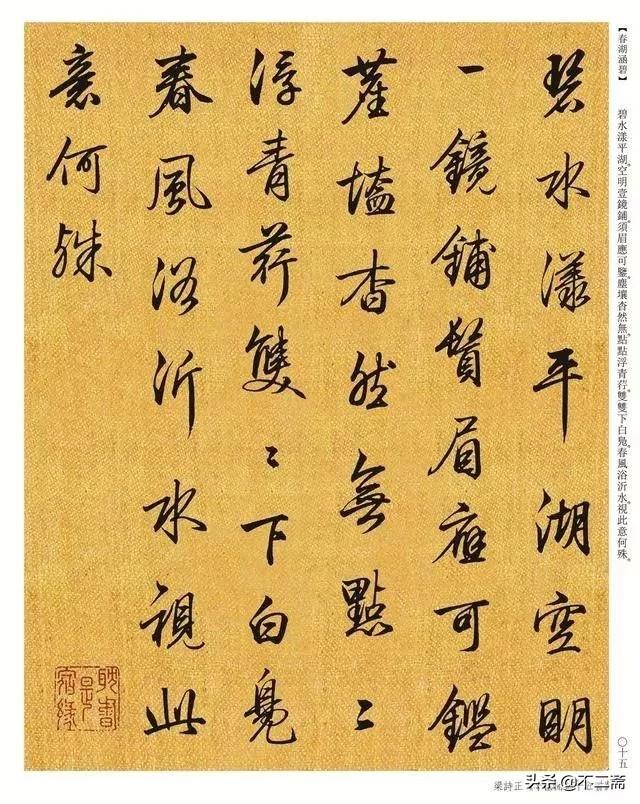 碧水漾平湖空明
一鏡鋪鬚眉應可鑑
塵壒杳然無點〻
浮青荇雙〻下白鳧
春風浴沂水視此
意何殊
耽書是宿緣
【春湖涵碧】
碧水漾平湖。空明壹鏡鋪。須眉應可鑒。塵壤杳然無。點點浮青荇。雙雙下白鳧。春風浴沂水。視此意何殊。
〇十五
梁詩正
头条 @不二斋